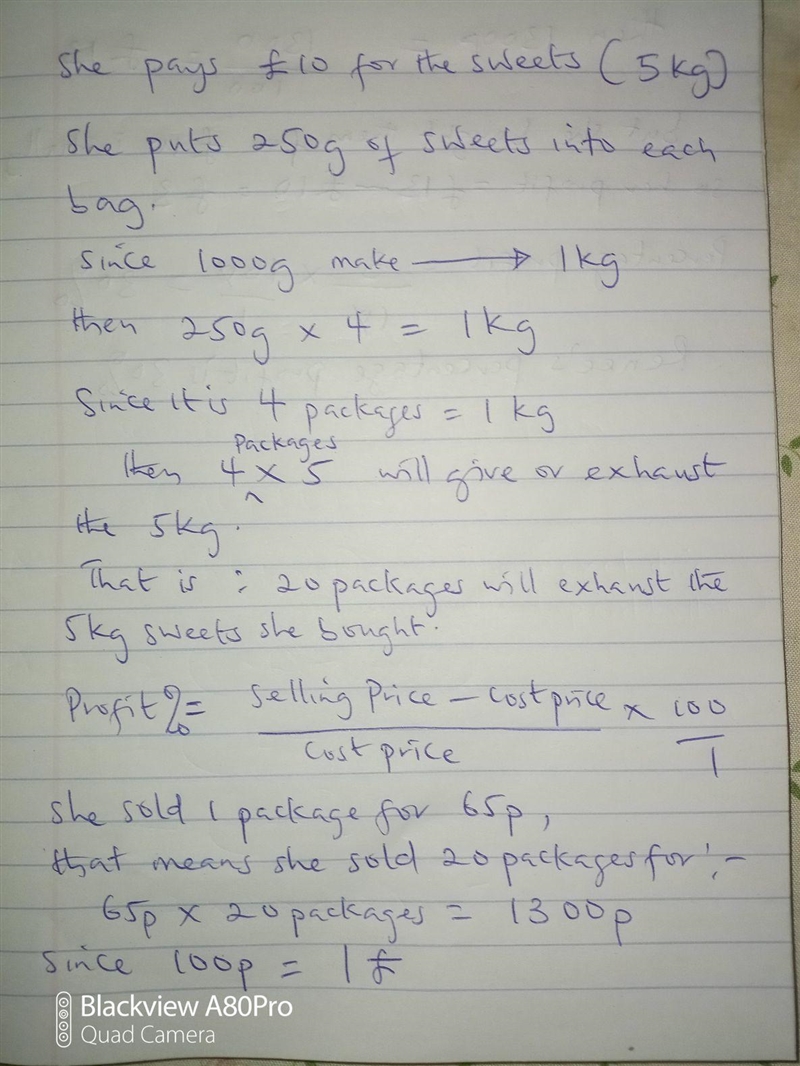 She pays £10 for the sweets (5kg)
She puts 250g of sweets into each
bag.
Since 1000g make → 1kg
then 250g x 4 = 1kg
Since it is 4 packages = 1kg
packages
then 4 ^ x 5 will give or exhaust
the 5kg.
That is : 20 packages will exhaust the
5kg sweets she bought.
Profit% = Selling Price – cost price x 100
cost price 1
She sold 1 package for 65p,
that means she sold 20 packages for :-
65p x 20 packages = 1300p
Since 100p = 1£
Blackview A80Pro
Quad Camera